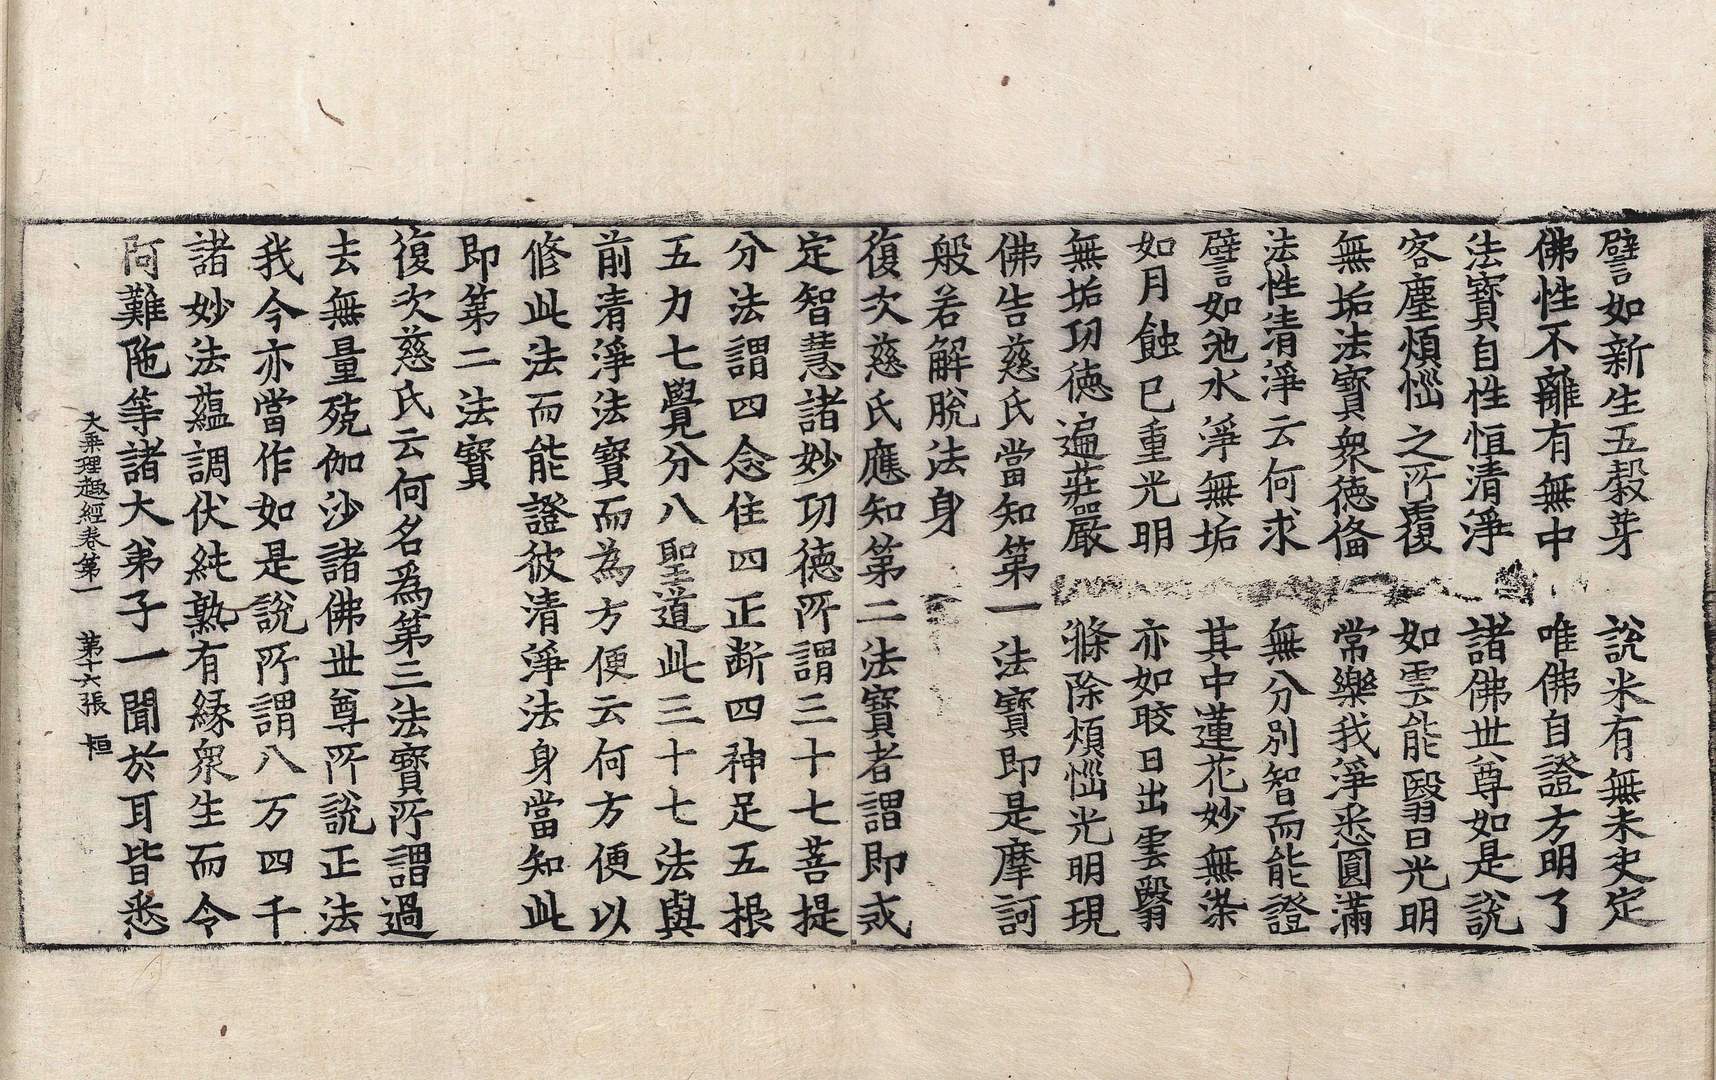 譬如新生五穀芽　說米有無未定
佛性不離有無中　唯佛自證方明了
法寶自性恒清淨　諸佛世尊如是說
客塵煩惱之所覆　如雲能翳日光明
無垢法寶眾德俻　常樂我淨悉圓滿
法性清淨云何求　無分別智而能證
譬如池水淨無垢　其中蓮花妙無染
如月蝕已重光明　亦如皎日出雲翳
無垢功德遍莊嚴　滌除煩惱光明現
佛告慈氏當知第一法寶即是摩訶
般若解脫法身
復次慈氏應知第二法寶者謂即戒
定智慧諸妙功德所謂三十七菩提
分法謂四念住四正斷四神足五根
五力七覺分八聖道此三十七法與
前清淨法寶而為方便云何方便以
修此法而能證彼清淨法身當知此
即第二法寶
復次慈氏云何名為第三法寶所謂過
去無量殑伽沙諸佛世尊所說正法
我今亦當作如是說所謂八万四千
諸妙法蘊調伏純熟有緣眾生而令
阿難陁等諸大弟子一聞於耳皆悉
大乘理趣經卷第一　第十六張　桓